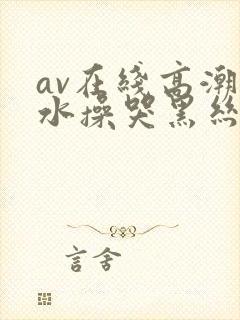 av在线高潮
水操哭黑丝
言舍